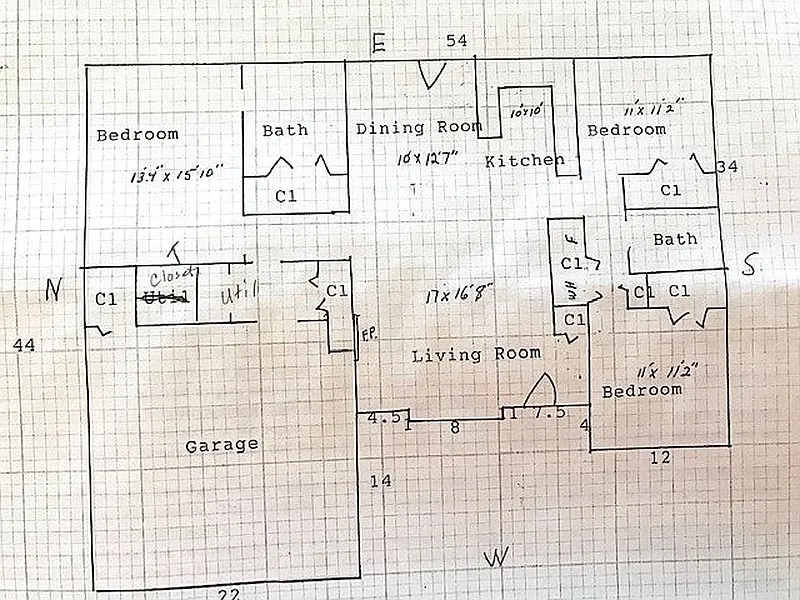 E
54
Bedroom
13'4" x 15'10"
Bath
Cl
Dining Room
10 x 12'7"
10'x10'
Kitchen
11' x 11'2"
Bedroom
Cl
34
Bath
N
S
Cl
Closet
Util
Util
Cl
F.P.
17 x 16'8"
F
Cl
WH
Cl
Cl
Cl
44
Living Room
11' x 11'2"
Bedroom
4.5
1
8
1
7.5
4
12
Garage
14
W
22